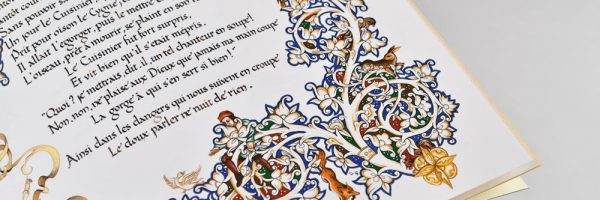 sans pouvoir
Un jour le Cuisinier,
Prit pour oison le Cygne;
Il allait l'égorger, puis le mettre en
L'oiseau, prêt à mourir, se plaint en son
Le Cuisinier fut fort surpris,
Et vit bien qu'il s'était mépris.
"Quoi? je mettrais, dit-il, un tel chanteur en soupe!
Non, non, ne plaise aux Dieux que jamais ma main coupe
La gorge à qui s'en sert si bien!"
Ainsi dans les dangers qui nous suivent en croupe
Le doux parler ne nuit de rien.